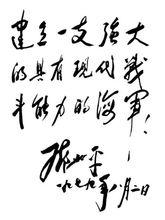 建立一支强大
的具有现代戰
斗能力的海军!
邓小平
一九七九年八月二日